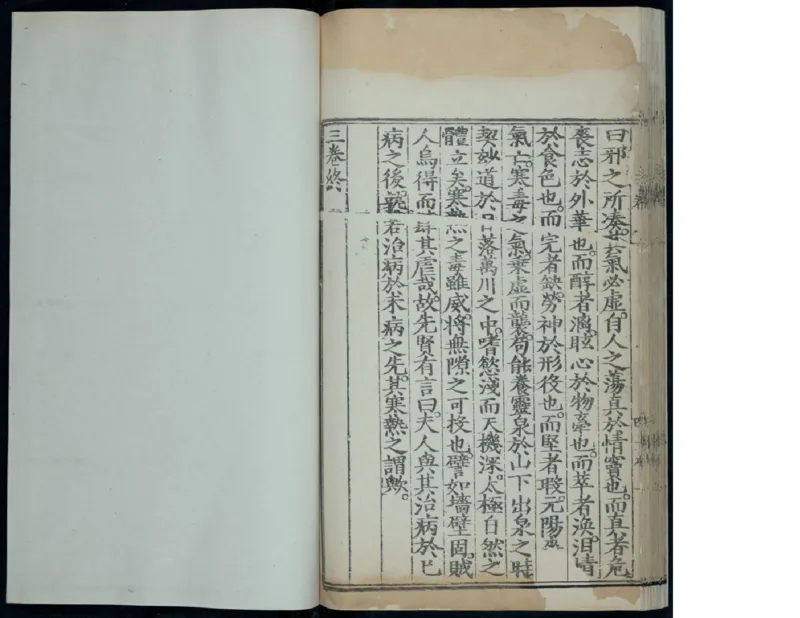 曰邪之所凑其氣必虛。自人之蕩真於情竇也。而真者危
喪志於外華也。而醇者漓。眩心於物牽也。而萃者渙。汨情
於食色也。而完者缺。勞神於形役也。而堅者瑕。元陽喪正
氣亡。寒毒之氣乘虛而襲。苟能養靈泉於山下出泉之時
契妙道於日落萬川之中。嗜慾淺而天機深。太極自然之
體立矣。寒熱之毒雖威。將無隙之可投也。譬如墻壁固。賊
人烏得而肆其虐哉。故先賢有言曰。夫人與其治病於已
病之後。孰若治病於未病之先。其寒熱之謂歟。
三卷終